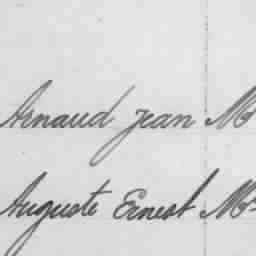 Arnaud Jean M
Auguste Ernest M